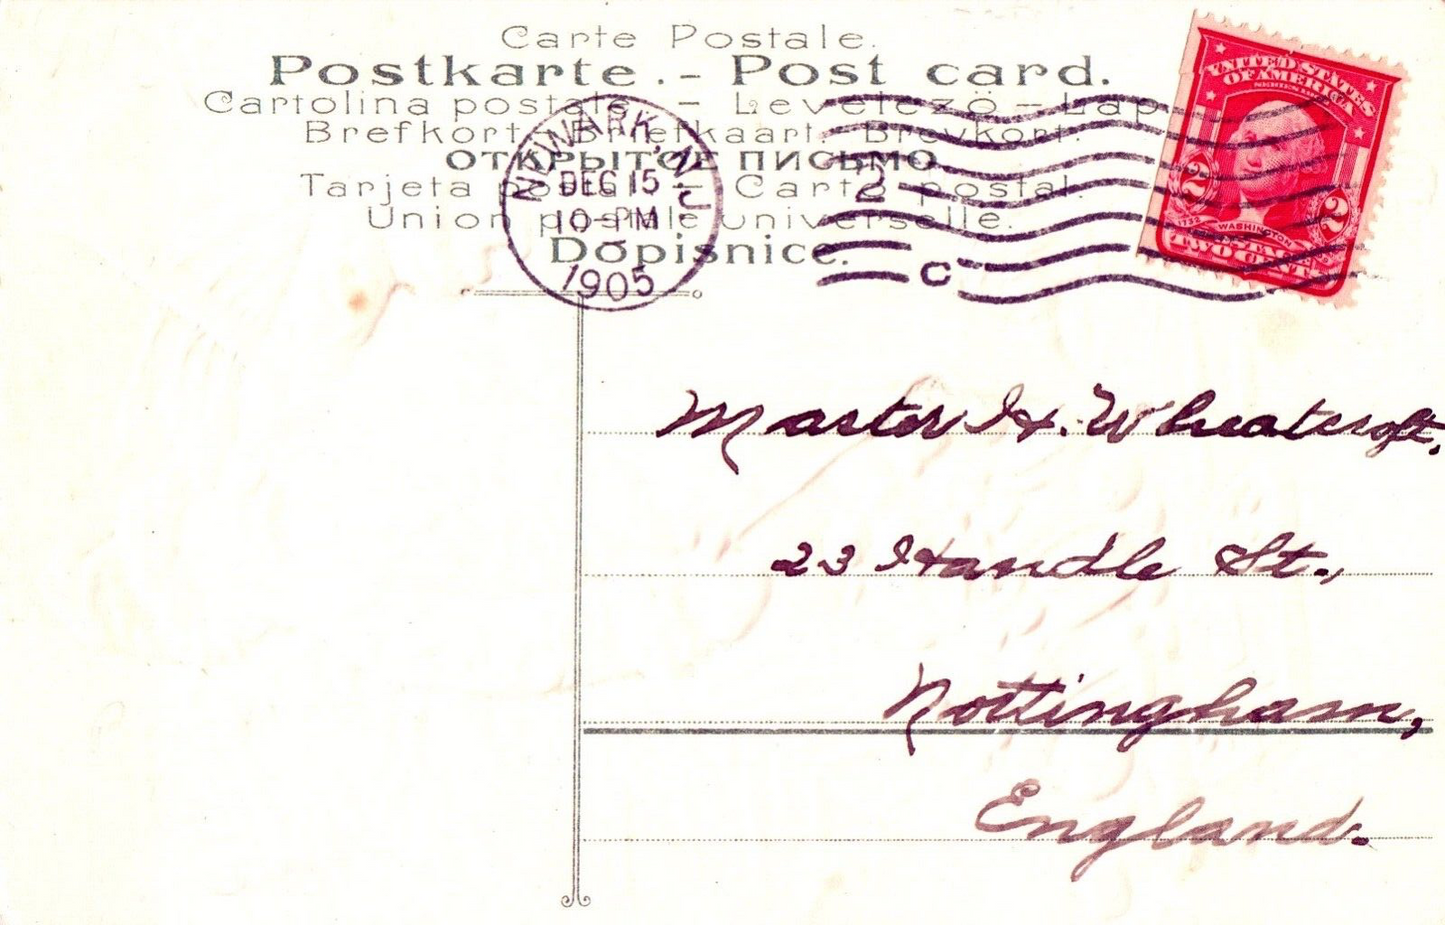 Carte Postale.
Postkarte. - Post card.
Cartolina postale. - Levelező-Lap
Brefkort. Briefkaart. Brevkort.
ОТКРЫТОЕ ПИСЬМО.
Tarjeta postal. Carte postal.
Union postale universelle.
Dopisnice.
NEWARK, N.J.
DEC 15
10-PM
1905
2
C
UNITED STATES
OF AMERICA
2 2
1732 WASHINGTON
TWO CENTS
Master H. Wheatcroft,
23 Handle St.,
Nottingham,
England.